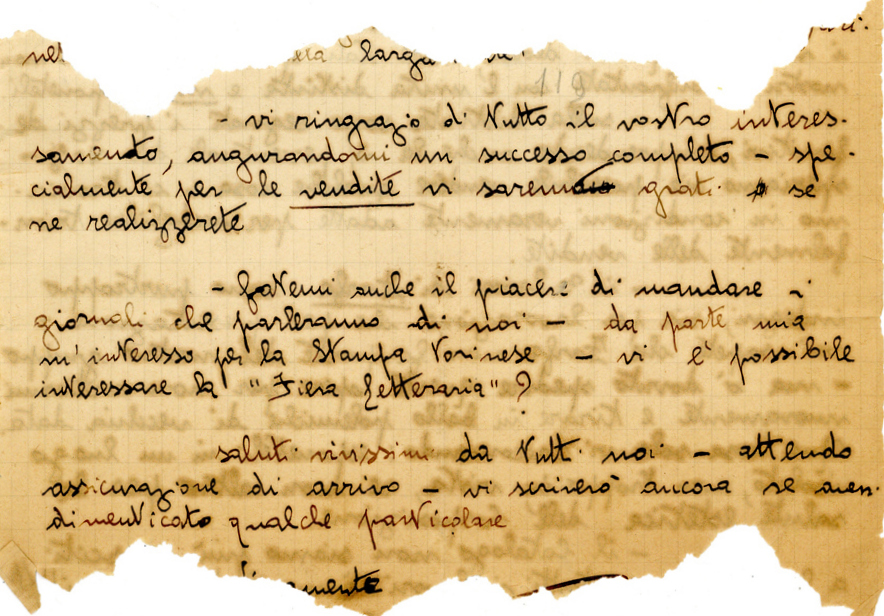 larga
119
- vi ringrazio di tutto il vostro interes-
samento, augurandomi un successo completo - spe-
cialmente per le vendite vi saremmo grati se
ne realizzerete
- fatemi anche il piacere di mandare i
giornali che parleranno di noi - da parte mia
m'interesso per la Stampa Torinese - vi è possibile
interessare la "Fiera Letteraria"?
saluti vivissimi da tutti noi - attendo
assicurazione di arrivo - vi scriverò ancora se avessi
dimenticato qualche particolare